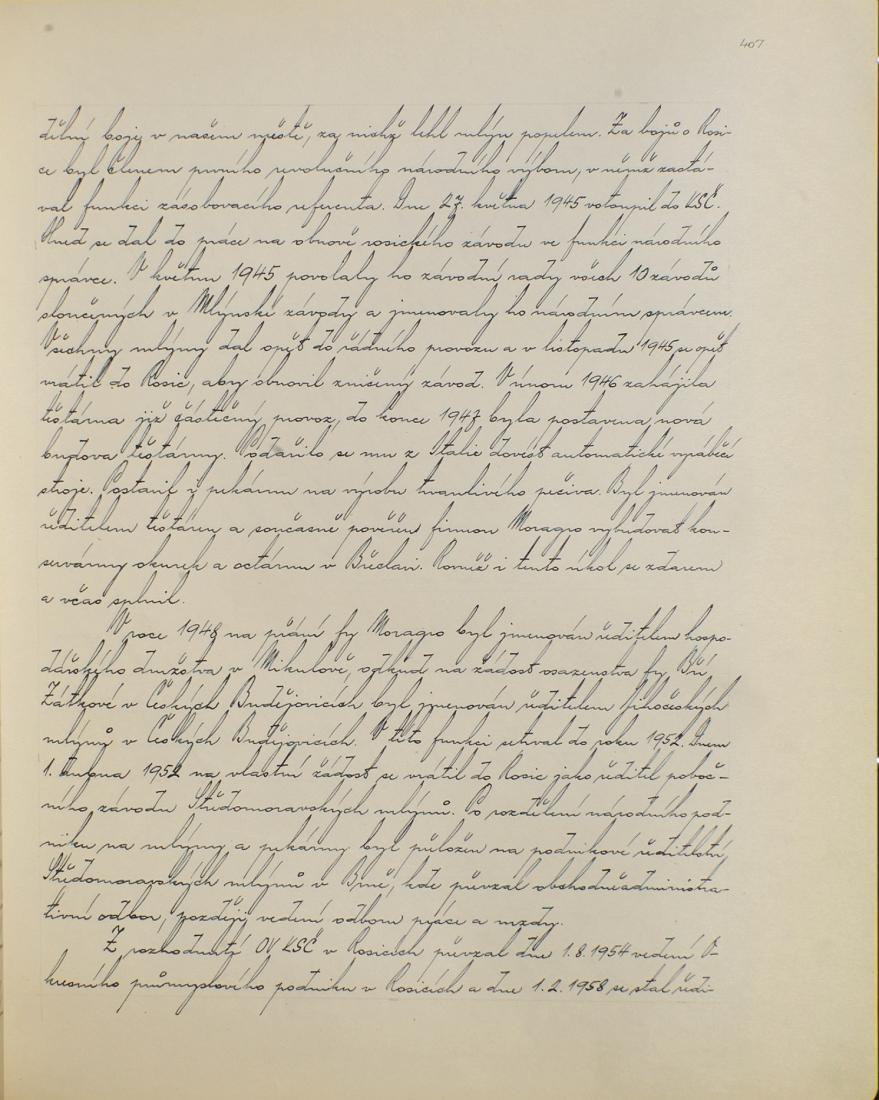 407
dělný boje v našem městě, za nichž lehl mlýn popelem. Za bojů o Rosi-
ce byl členem prvního revolučního národního výboru, v němž zastá-
val funkci zásobovacího referenta. Dne 27. května 1945 vstoupil do KSČ.
Ihned se dal do práce na obnově rosického závodu ve funkci národního
správce. V květnu 1945 povolaly ho závodní rady všech 10 závodů
sloučených v Mlýnské závody a jmenovaly ho národním správcem.
Všechny mlýny dal opět do řádného provozu a v listopadu 1945 se opět
vrátil do Rosic, aby obnovil zničený závod. V únoru 1946 zahájila
těstárna již částečný provoz, do konce 1947 byla postavena nová
budova těstárny. Podařilo se mu z Italie dovést automatické vyráběcí
stroje. Postavil i pekárnu na výrobu trvanlivého pečiva. Byl jmenován
ředitelem těstáren a současně pověřen firmou Moragro vybudovat kon-
servárny okurek a octárnu v Břeclavi. Rovněž i tento úkol se zdarem
a včas splnil.
V roce 1948 na přání fy Moragro byl jmenován ředitelem hospo-
dářského družstva v Mikulově, odkud na žádost osazenstva fy Bří
Zátkové v Českých Budějovicích byl jmenován ředitelem Jihočeských
mlýnů v Českých Budějovicích. V této funkci setrval do roku 1952. Dnem
1. 1952 na vlastní žádost se vrátil do Rosic jako ředitel poboč-
ního závodu Středomoravských mlýnů. Po rozdělení národního pod-
niku na mlýny a pekárny byl přeložen na podnikové ředitelství
Středomoravských mlýnů v Brně, kde převzal obchodněadministra-
tivní odbor, později vedení odboru práce a mzdy.
Z rozhodnutí OV KSČ v Rosicích převzal dne 1.8.1954 vedení O-
kresního průmyslového podniku v Rosicích a dne 1.2.1958 se stal ředi-